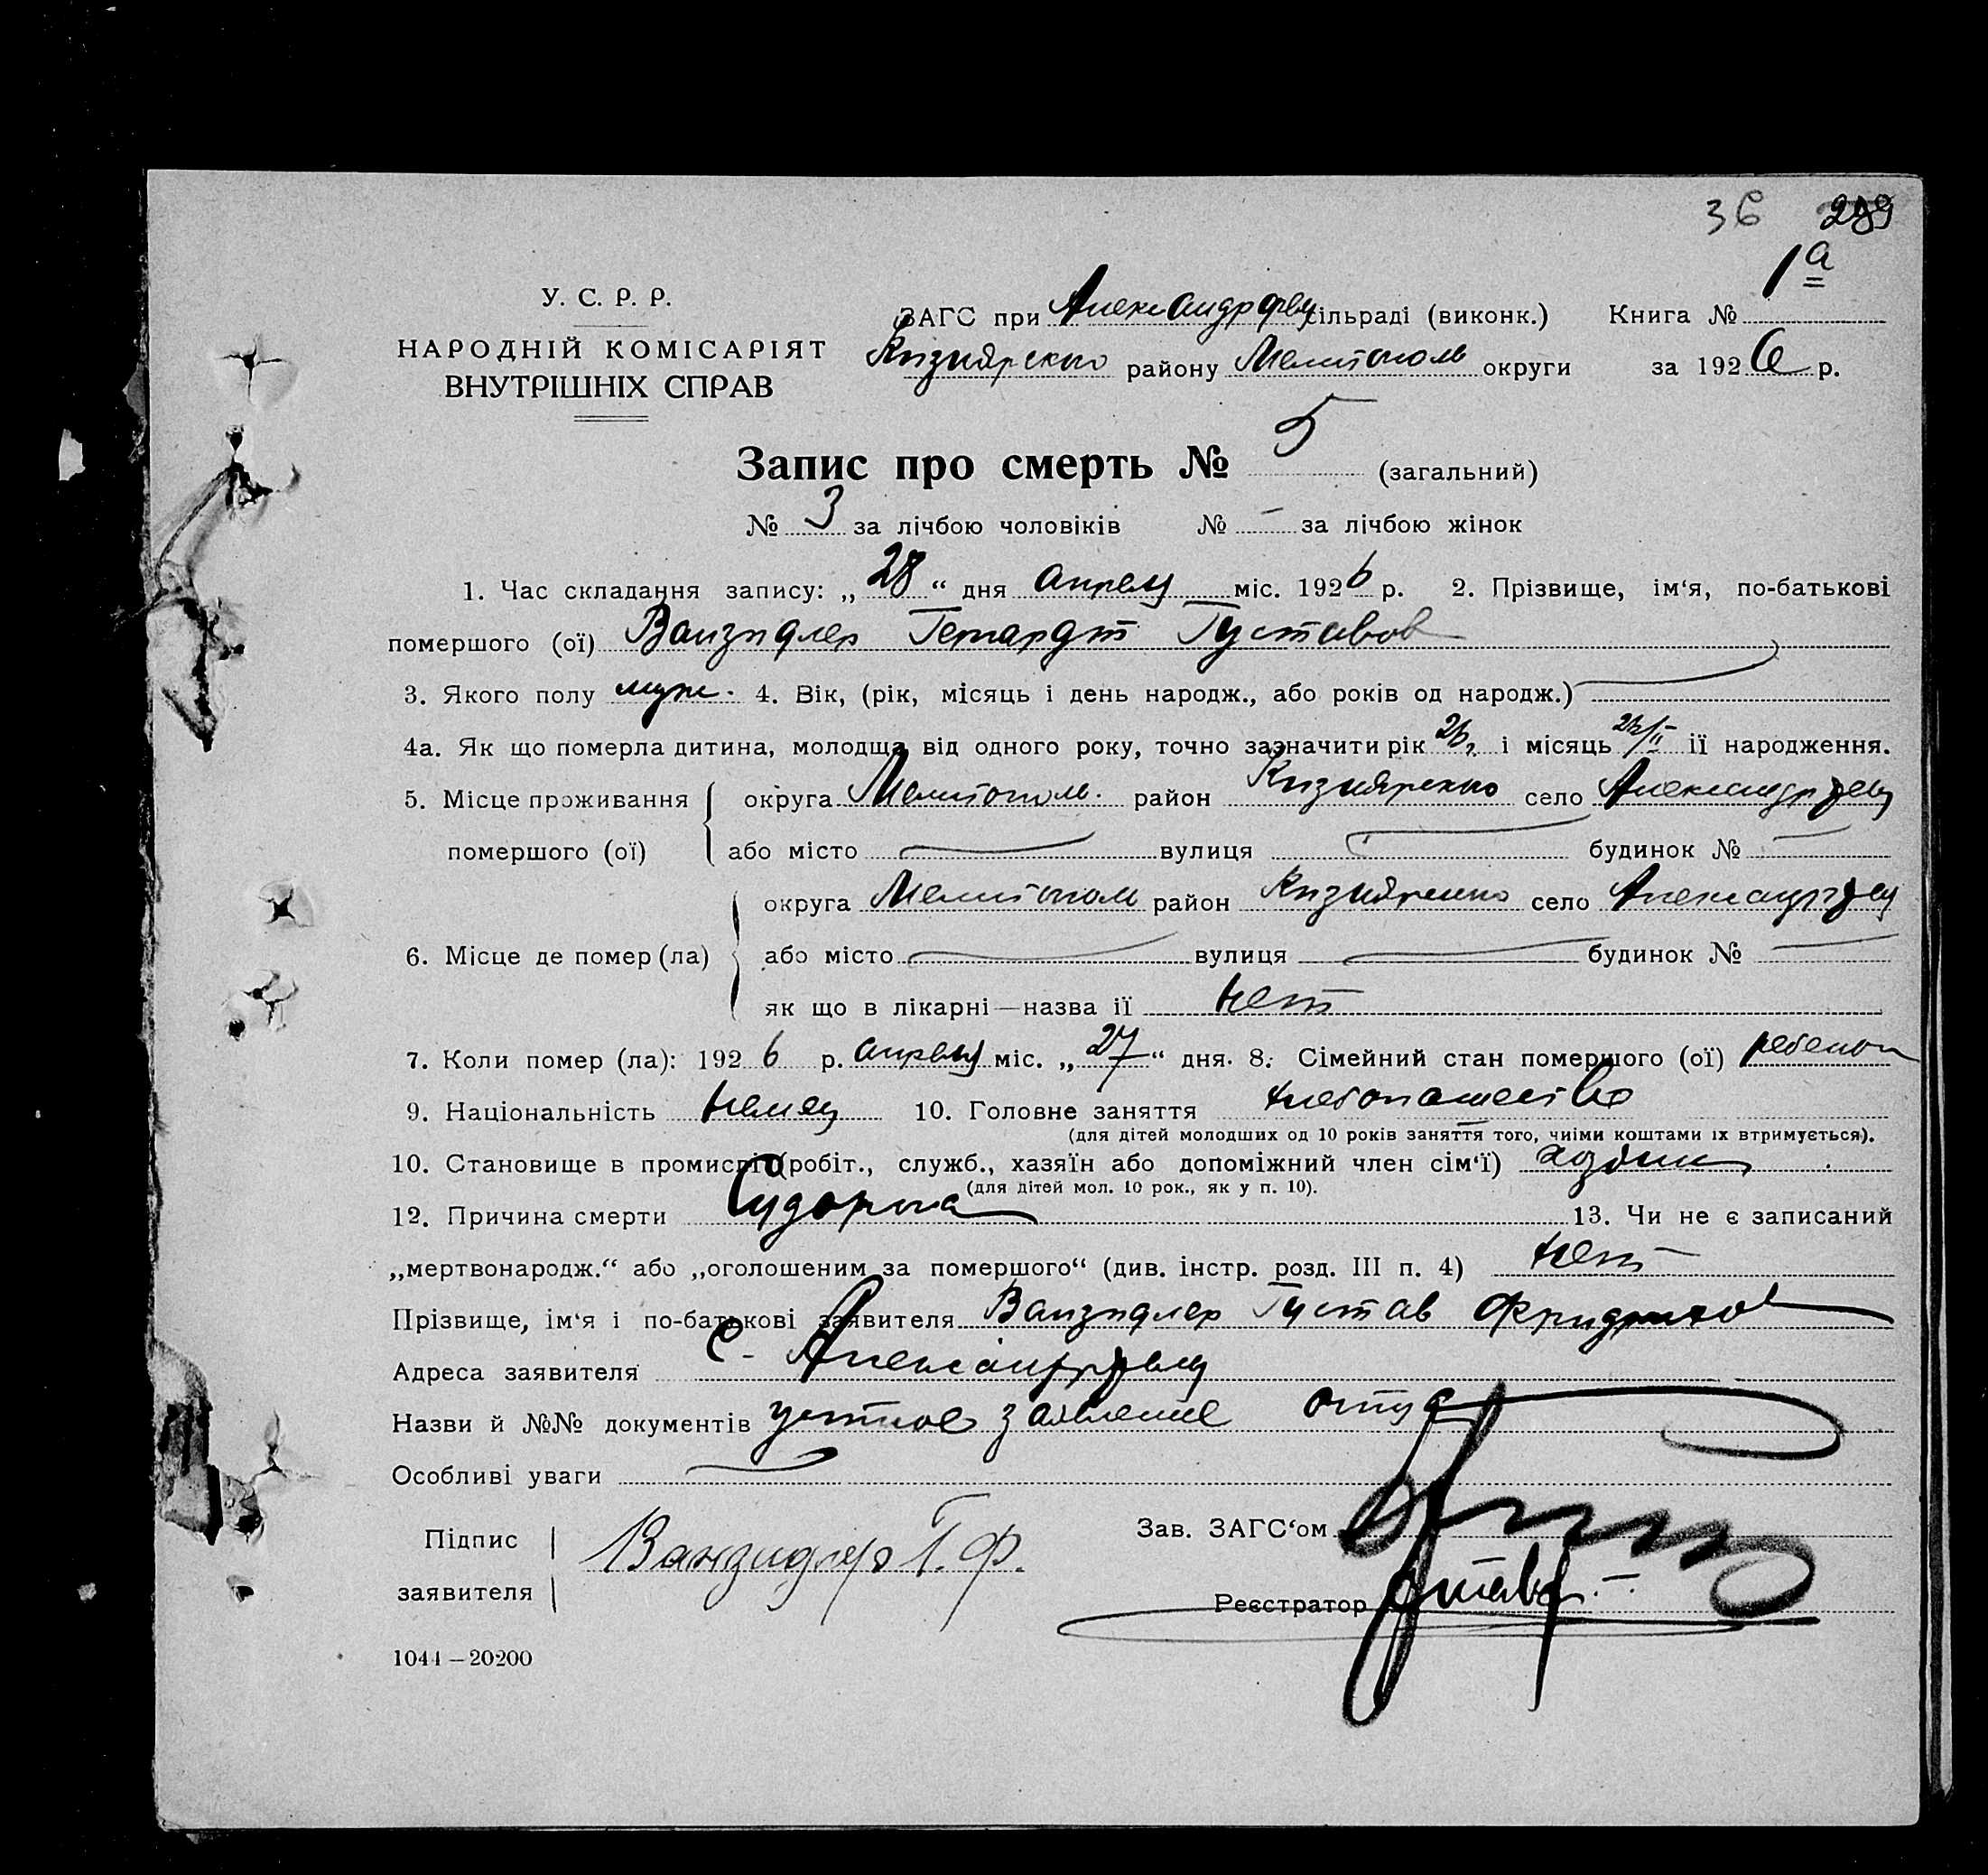 36 289
1а
У. С. Р. Р.
НАРОДНІЙ КОМІСАРІЯТ
ВНУТРІШНІХ СПРАВ
ЗАГС при Александрфелд сільраді (виконк.) Книга №
Кизиярского району Мелитополь округи за 1926 р.
Запис про смерть № 5 (загальний)
№ 3 за лічбою чоловіків № – за лічбою жінок
1. Час складання запису: „28“ дня апреля міс. 1926 р. 2. Прізвище, ім‘я, по-батькові
помершого (ої) Ванзидлер Гергардт Густавов
3. Якого полу муж. 4. Вік, (рік, місяць і день народж., або років од народж.)
4а. Як що померла дитина, молодща від одного року, точно зазначити рік і місяць ії народження.
5. Місце проживання округа Мелитополь. район Кизиярского село Александрфелд
помершого (ої) або місто вулиця будинок №
округа Мелитополь район Кизиярского село Александрфелд
6. Місце де помер (ла) або місто вулиця будинок №
як що в лікарні — назва ії нет
7. Коли помер (ла): 1926 р. апреля міс. „27“ дня. 8. Сімейний стан помершого (ої) ребенок
9. Національність немец 10. Головне заняття хлебопашество
(для дітей молодших од 10 років заняття того, чиїми коштами їх втримується).
10. Становище в промислі (робіт., служб., хазяїн або допоміжний член сім‘ї) хозяин
(для дітей мол. 10 рок., як у п. 10).
12. Причина смерти Судорога 13. Чи не є записаний
„мертвонародж.“ або „оголошеним за помершого“ (див. інстр. розд. III п. 4) нет
Прізвище, ім‘я і по-батькові заявителя Ванзидлер Густав Фридрихов
Адреса заявителя с. Александрфелд
Назви й №№ документів устное заявление отца
Особливі уваги
Підпис
заявителя Ванзидлер Г. Ф.
Зав. ЗАГС‘ом
Реєстратор
1044 — 20200